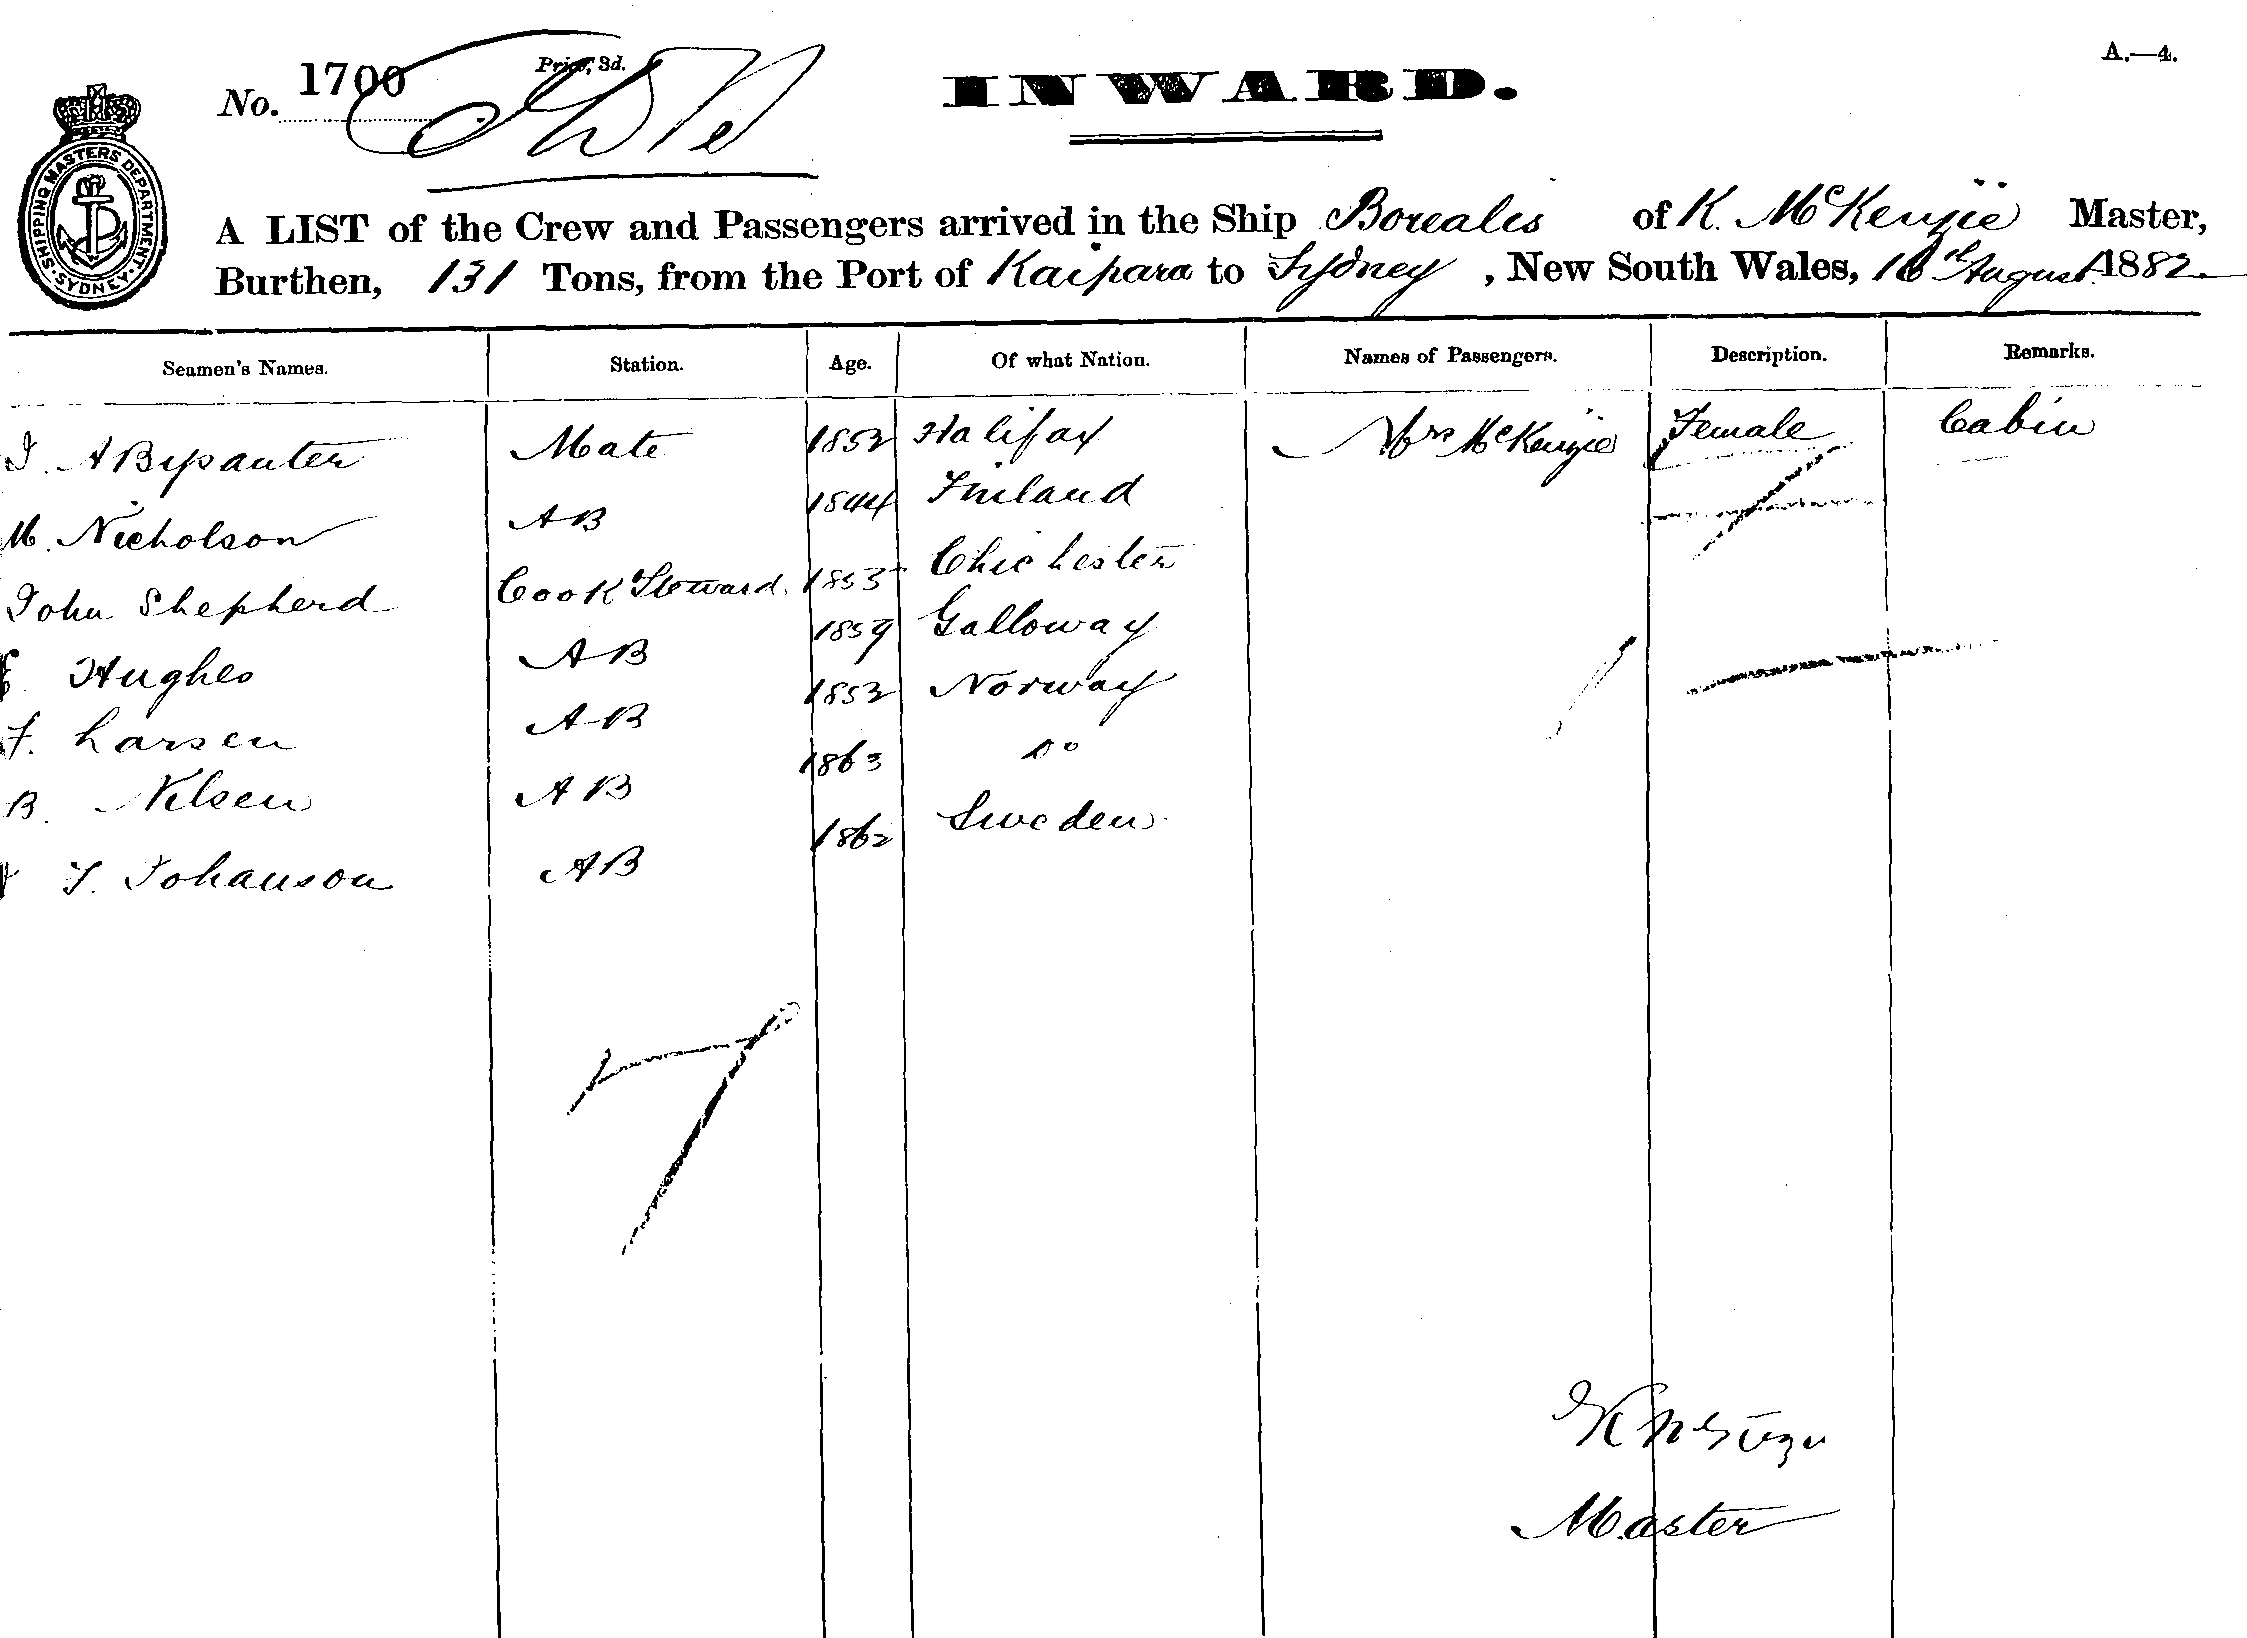 A.—4.
No. 1700 Price, 3d.
INWARD.
SHIPPING MASTERS DEPARTMENT. SYDNEY.
A LIST of the Crew and Passengers arrived in the Ship Borealis of K. McKenzie Master,
Burthen, 131 Tons, from the Port of Kaipara to Sydney, New South Wales, August 1882.
Seamen's Names. Station. Age. Of what Nation. Names of Passengers. Description. Remarks.
Mate 1852 Halifax Mrs McKenzie Female Cabin
M. Nicholson AB 1844 Finland
John Shepherd Cook Steward. 1853 Chichester
Hughes AB 1859 Galloway
F. Larsen AB 1852 Norway
B. Nelsen AB 1863 Do
Johanson AB 1862 Sweden
7
Master